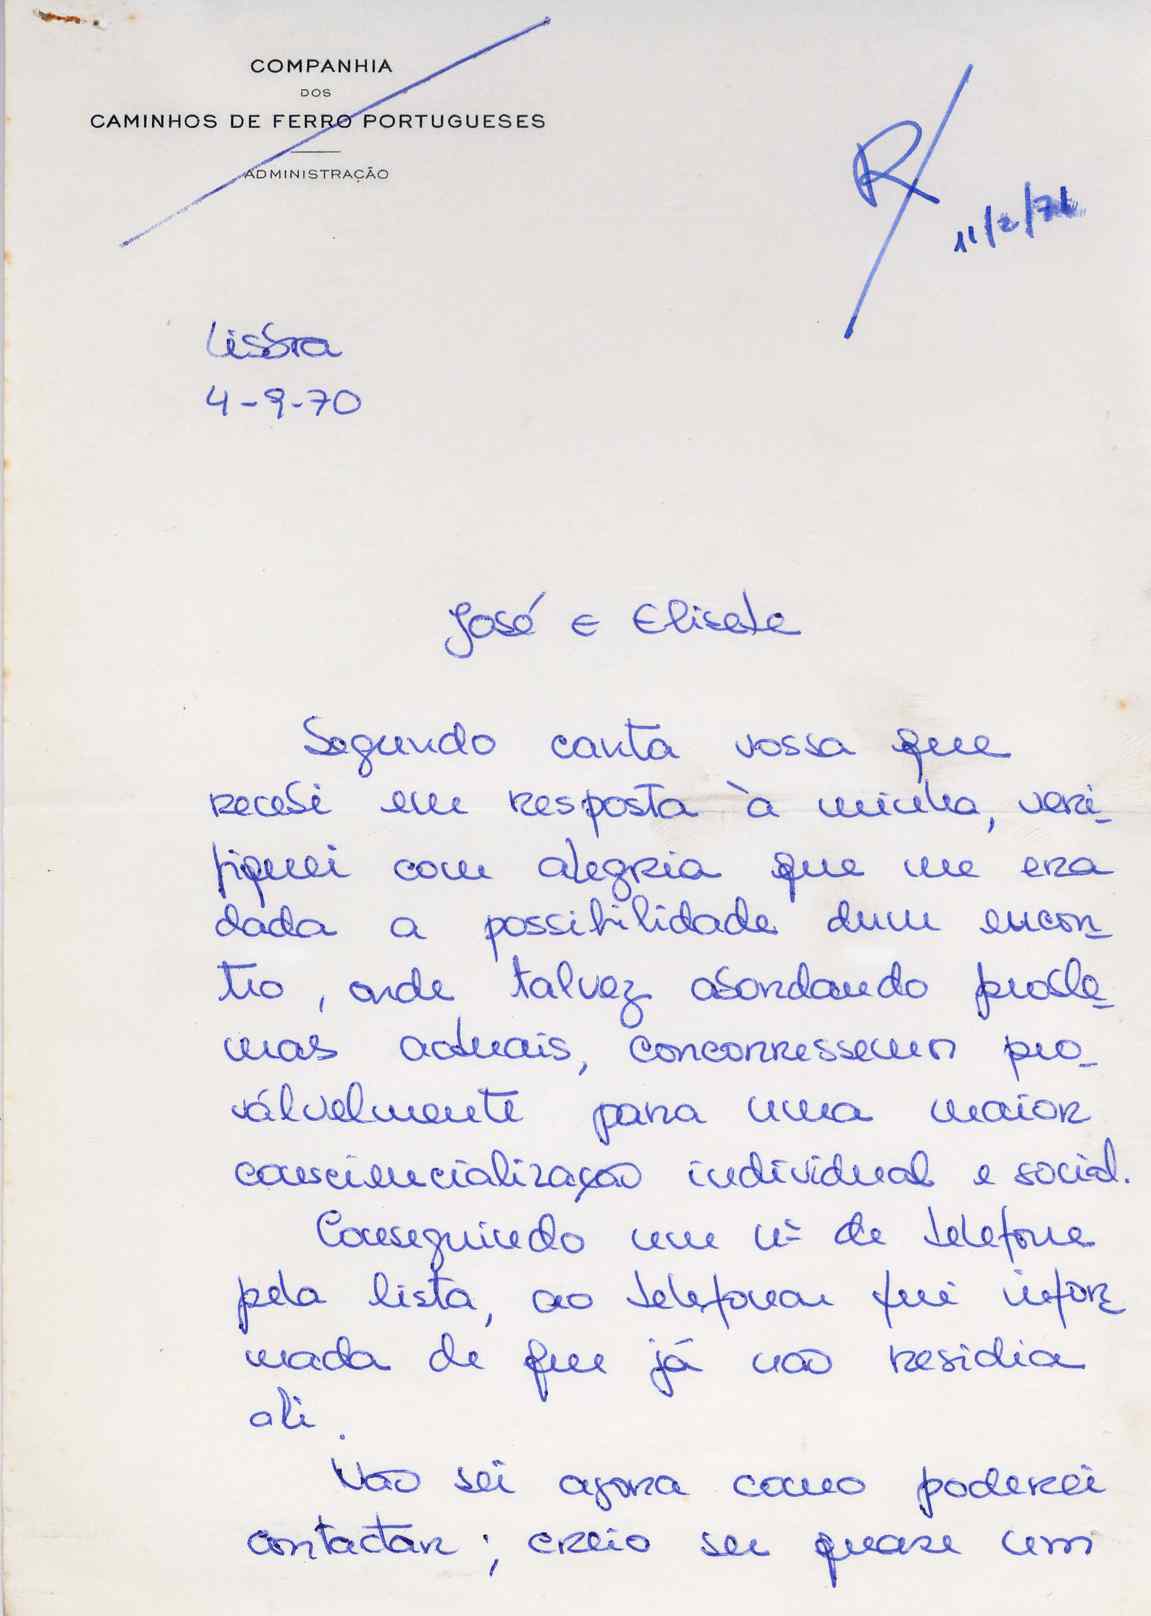 COMPANHIA
DOS
CAMINHOS DE FERRO PORTUGUESES
ADMINISTRAÇÃO
R
11/2/71
Lisboa
4-9-70
José e Elisete
Segundo carta vossa que
recebi em resposta à minha, veri-
fiquei com alegria que me era
dada a possibilidade dum encon-
tro, onde talvez abordando proble-
mas actuais, concorressem pro-
válvelmente para uma maior
consciencialização individual e social.
Conseguindo um nº de telefone
pela lista, ao telefonar fui infor
mada de que já não residia
ali.
Não sei agora como poderei
contactar; creio ser quase um